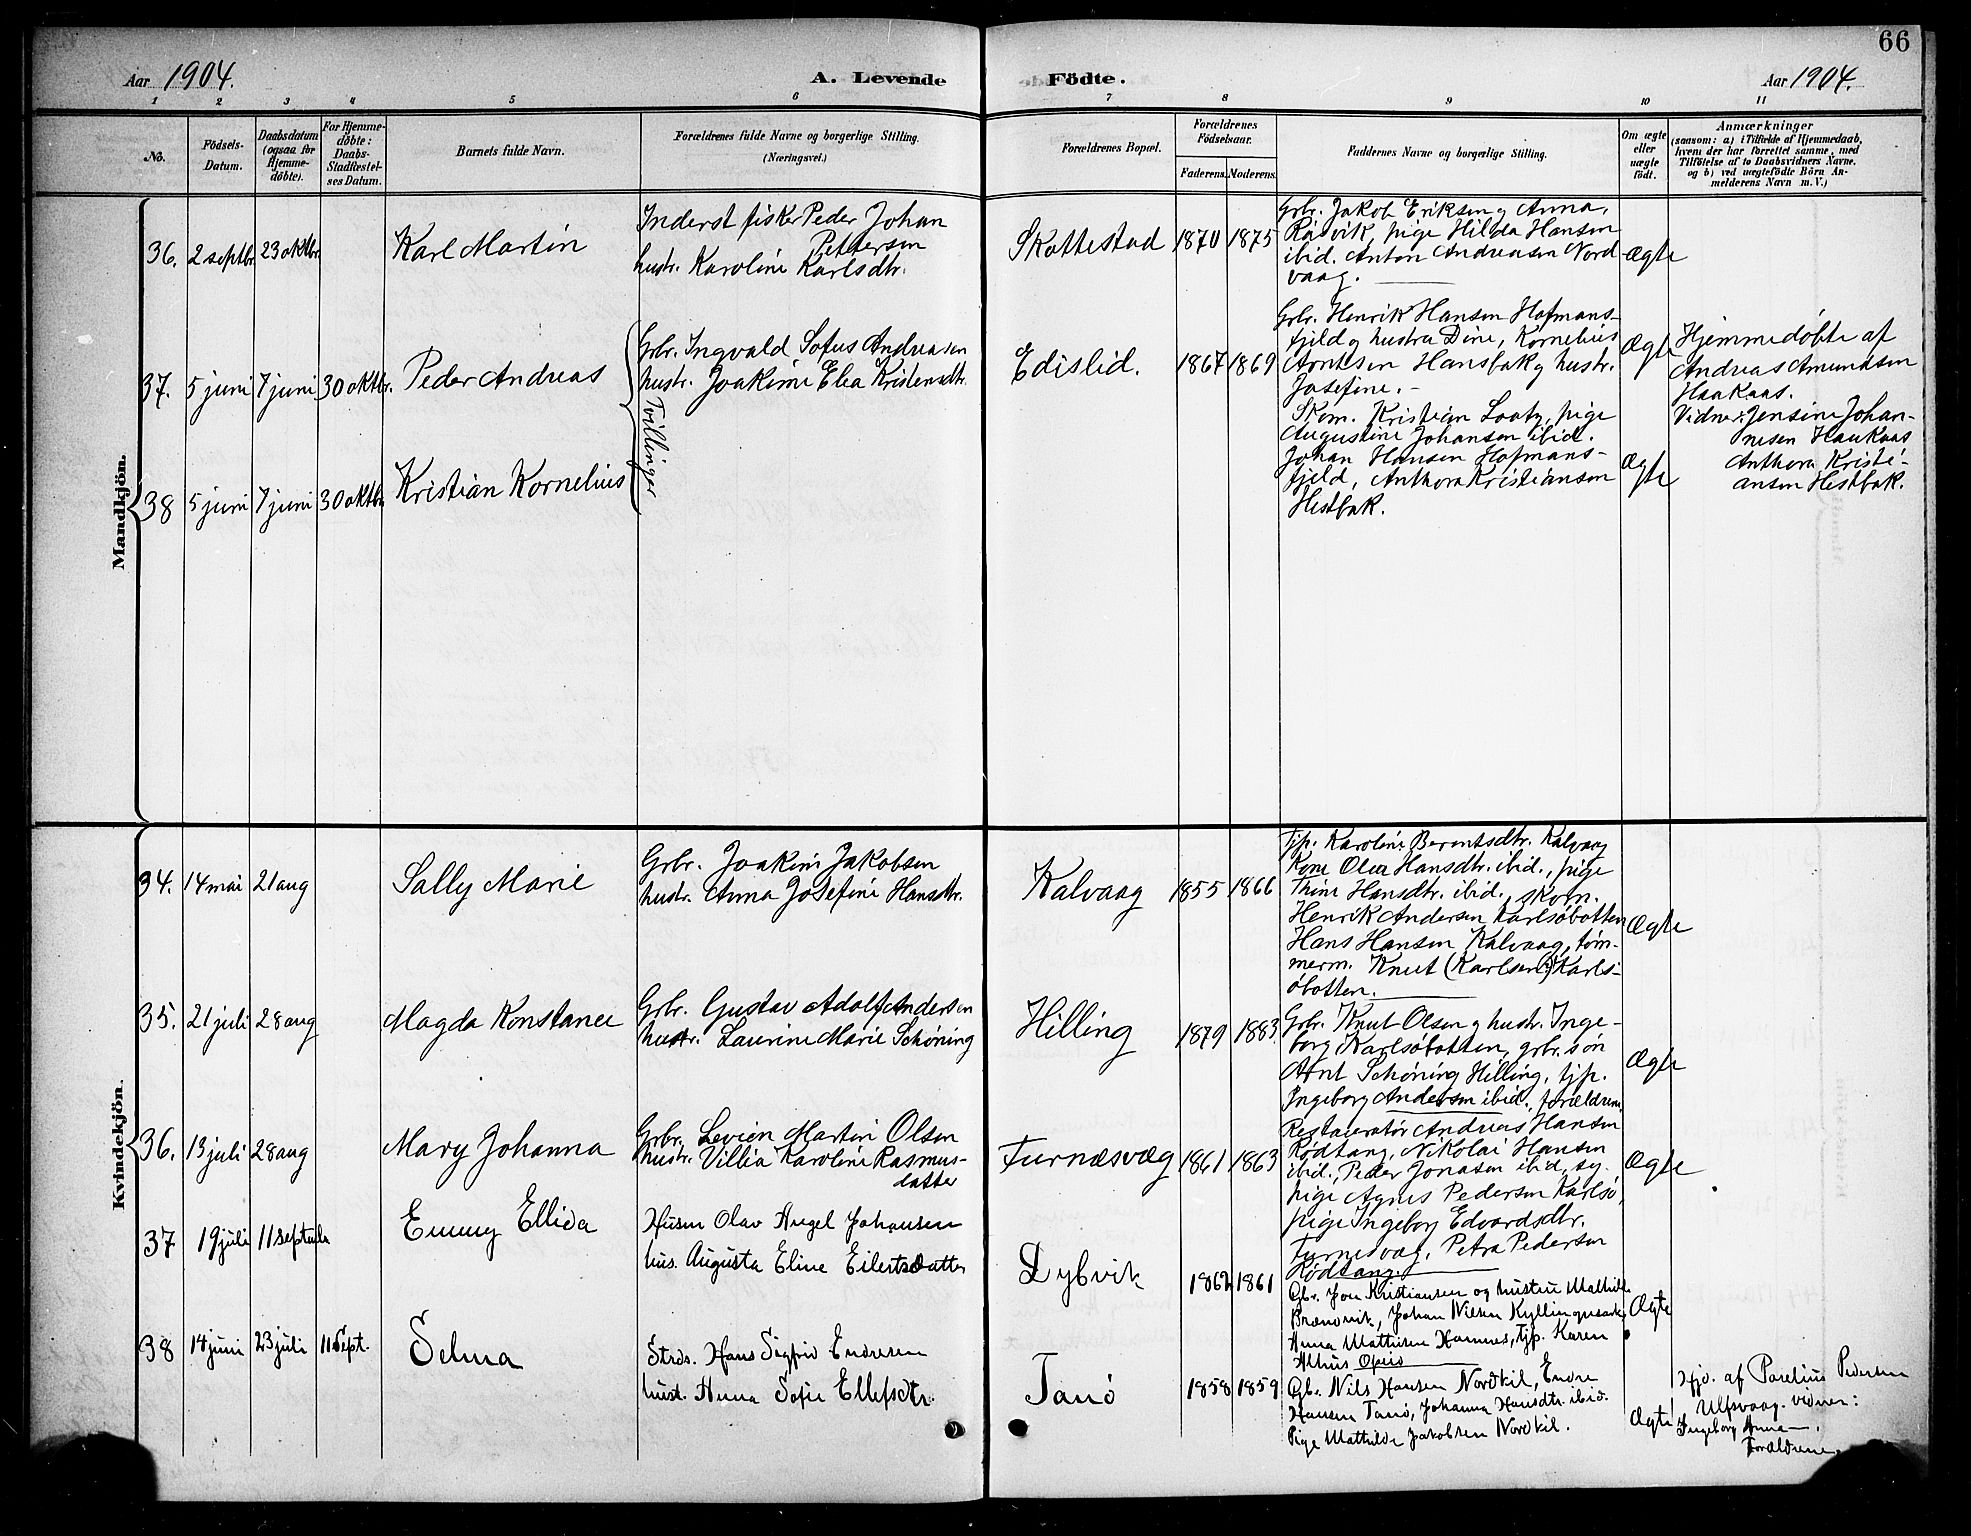 66
Aar 1904.
A. Levende Födte.
Aar 1904.
1 2 3 4 5 6 7 8 9 10 11
No.
Födsels-
Datum.
Daabsdatum
(ogsaa for
Hjemme-
döbte).
For Hjemme-
döbte:
Daabs-
Stadfæstel-
ses Datum.
Barnets fulde Navn.
Forældrenes fulde Navne og borgerlige Stilling.
(Næringsvei.)
Forældrenes Bopæl.
Forældrenes
Födselsaar.
Faderens. Moderens.
Faddernes Navne og borgerlige Stilling.
Om ægte
eller
uægte
födt.
Anmærkninger
(saasom: a) i Tilfælde af Hjemmedaab,
hvem der har forrettet samme, med
Tilföielse af to Daabsvidners Navne.
og b) ved uægtefödte Börn An-
melderens Navn m. V.)
Mandkjön.
36. 2 septbr. 23 oktbr.
Karl Martin
Inderst fisker Peder Johan
Pettersen
hustr. Karoline Karlsdtr.
Skottestad 1870 1875
Grbr. Jakob Eriksen og Anna,
Råsvik, pige Hilda Hansen
ibid. Anton Andreasen Nord
vaag.
Ægte
37. 5 juni 7 juni 30 oktbr.
Peder Andreas
Grbr. Ingvald Sofus Andreasen
hustr. Joakime Elea Kristensdtr.
Tvillinger
Edislid. 1867 1869
Grbr. Henrik Hansen Hofmans-
fjeld og hustru Dine, Kornelius
Arntsen Hansbak og hustr.
Josefine.-
Ægte
Hjemmedöbte af
Andreas Amundsen
Haukaas.
Vidner: Jensine Johan-
nesen Haukaas
Anthora Kristi-
ansen Hestbak.
38 5 juni 7 juni 30 oktbr.
Kristian Kornelius
Skom. Kristian Loatz, pige
Augustine Johansen ibid.
Johan Hansen Hofmans-
fjeld, Anthora Kristiansen
Hestbak.
Ægte
Kvindekjön.
34. 14 mai 21 aug
Sally Marie
Grbr. Joakim Jakobsen
hustr. Anna Josefine Hansdtr.
Kalvaag 1855 1866
Tjp. Karoline Berentsdtr. Kalvaag
Kone Olea Hansdtr. ibid., pige
Thine Hansdtr. ibid., skom.
Henrik Andersen Karlsöbotten
Hans Hansen Kalvaag, töm-
merm. Knut (Karlsen?) Karls-
öbotten.
Ægte
35. 21 juli 28 aug
Magda Konstance
Grbr. Gustav Adolf Andersen
hustr. Laurine Marie Schöning
Hilling 1879 1883
Grbr. Knut Olsen og hustr. Inge-
borg Karlsöbotten, grbr. sön
Arnt Schöning Hilling, tjp.
Ingeborg Andersen ibid., forældrene.
Ægte
36. 13 juli 28 aug
Mary Johanna
Grbr. Levien Martin Olsen
hustr. Villia Karoline Rasmus-
datter
Furnæsvæg 1861 1863
Restauratör Andreas Hansen
Rödtang, Nikolai Hansen
ibid., Peder Jonasen ibid, sy-
pige Agnes Pedersen Karlsö,
pige Ingeborg Edvardsdtr.
Furnesvæg, Petra Pedersen
Rödtang.
Ægte
37 19 juli 11 septbr
Emmy Ellida
Husm Olav Angel Johansen
hus. Augusta Eline Eilertsdatter
Dybvik 1862 1861
Gbr. Jon Kristiansen og hustru Mathilde
Brænnvik, Johan Nilsen Kyllingmark
Anna Mathisen Hamnes, Tjp. Karen
Ægte
38 14 juni 23 juli 11 Sept.
Selma
Strds. Hans Sigfrid Endresen
hust. Anna Sofie Ellefsdtr.
Tanö 1858 1859
Gbr. Nils Hansen Nordkil, Endre
Hansen Tanö, Johanna Hansdtr. ibid.
Pige Mathilde Jakobsen Nordkil.
Ægte
Hjd. af Parelius Pedersen
Ulfsvaag. vidner:
Ingeborg Anna
Forældrene.